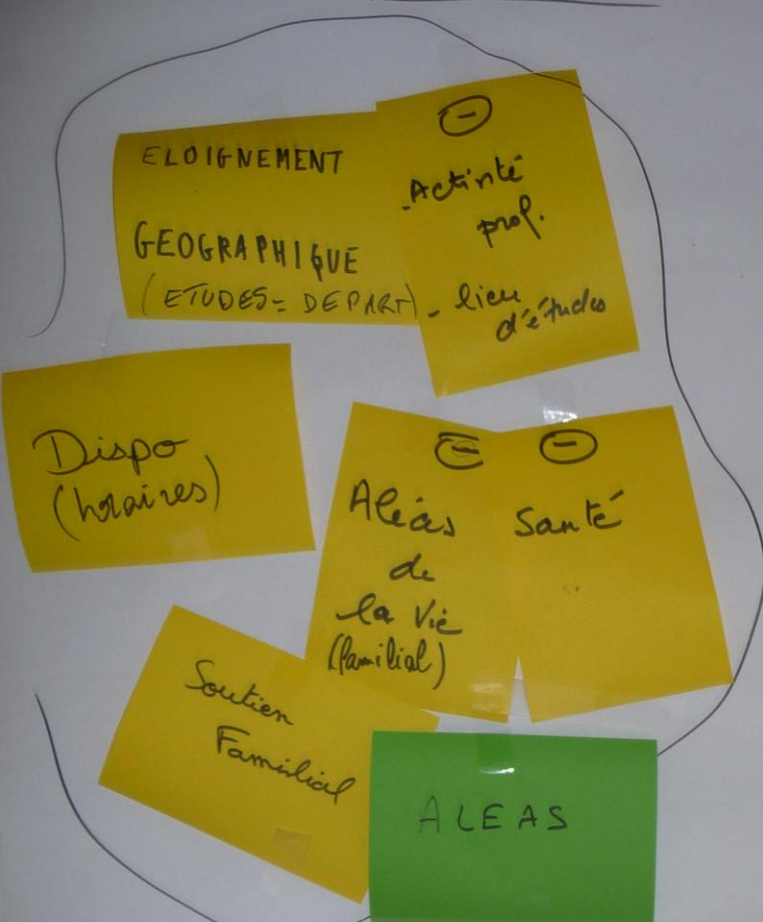 ELOIGNEMENT
GEOGRAPHIQUE
(ETUDES = DEPART)
-
- Activité
prof.
- lieu
d'études
Dispo
(horaires)
-
Aléas
de
la Vie
(familial)
-
Santé
Soutien
Familial
ALEAS